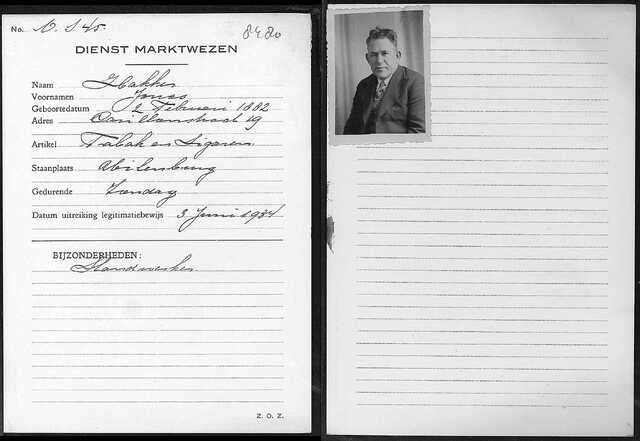 No. 8480
DIENST MARKTWEZEN
Naam Hakker
Voornamen Jonas
Geboortedatum 2 Februari 1882
Adres 19
Artikel Tabak en Sigaren
Staanplaats Uilenburg
Gedurende Zondag
Datum uitreiking legitimatiebewijs 3 Juni 1934
BIJZONDERHEDEN:
Standwerker
Z. O. Z.